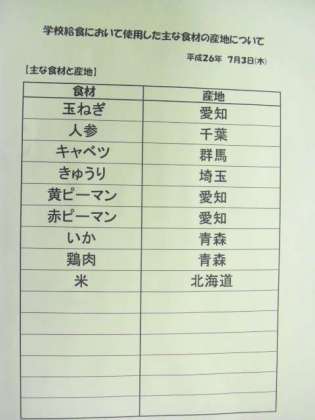 学校給食において使用した主な食材の産地について
平成26年 7月3日(木)
【主な食材と産地】
食材 産地
玉ねぎ 愛知
人参 千葉
キャベツ 群馬
きゅうり 埼玉
黄ピーマン 愛知
赤ピーマン 愛知
いか 青森
鶏肉 青森
米 北海道